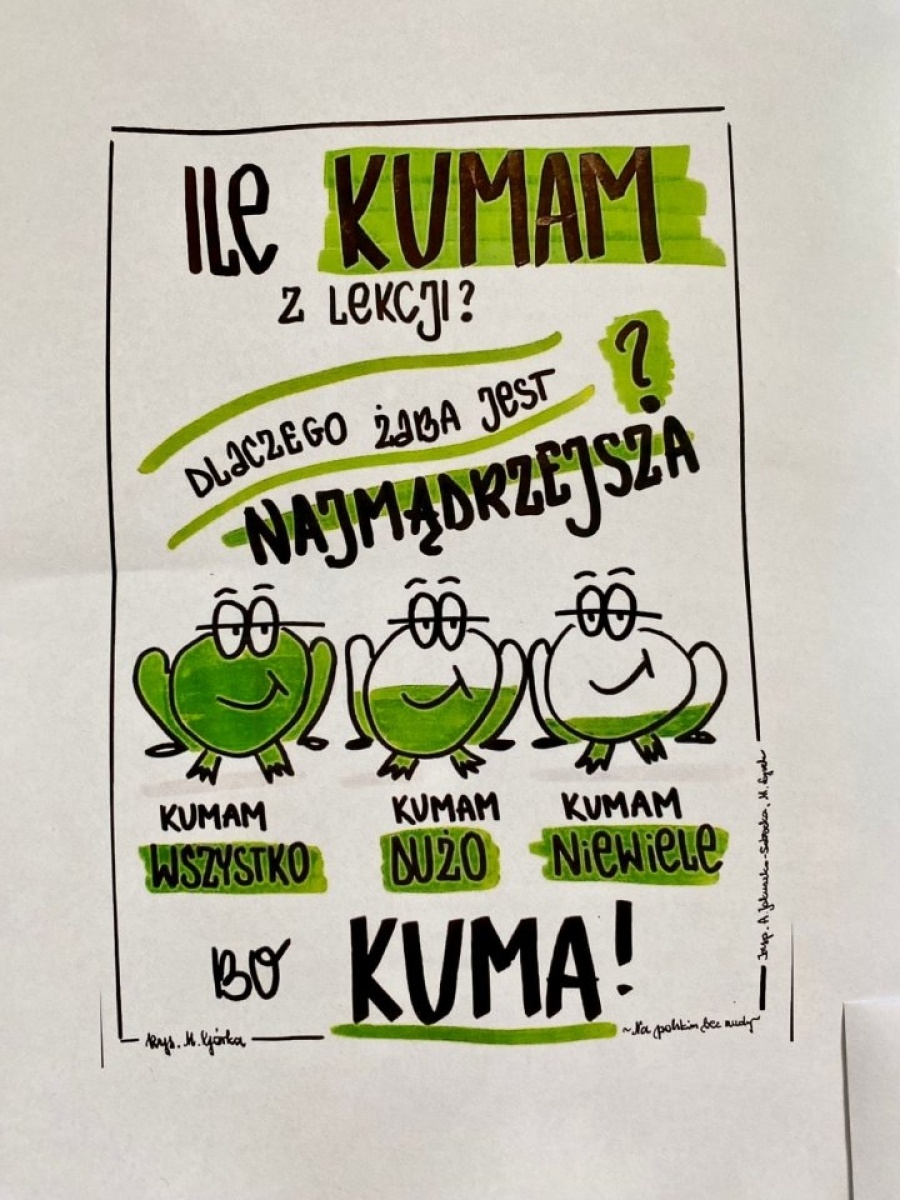 ILE KUMAM
Z LEKCJI?
DLACZEGO ŻABA JEST
NAJMĄDRZEJSZA?
KUMAM WSZYSTKO
KUMAM DUŻO
KUMAM NIEWIELE
BO KUMA!
~Na polskim bez nudy~
rys. M.
Insp. A.